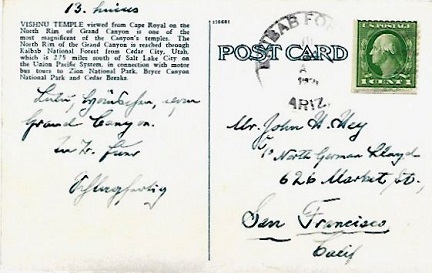 13. 
VISHNU TEMPLE viewed from Cape Royal on the
North Rim of Grand Canyon is one of the
most magnificent of the Canyon's temples. The
North Rim of Grand Canyon is reached through
Kaibab National Forest from Cedar City, Utah,
which is 275 miles south of Salt Lake City on
the Union Pacific System, in connection with motor
bus tours to Zion National Park, Bryce Canyon
National Park and Cedar Breaks.
Grand Canyon.
Schlagfertig
POST CARD
KAIBAB FO
ARIZ.
1 CENT 1
Mr. John H. Hey
North German Lloyd
626 Market St.
San Francisco
Calif